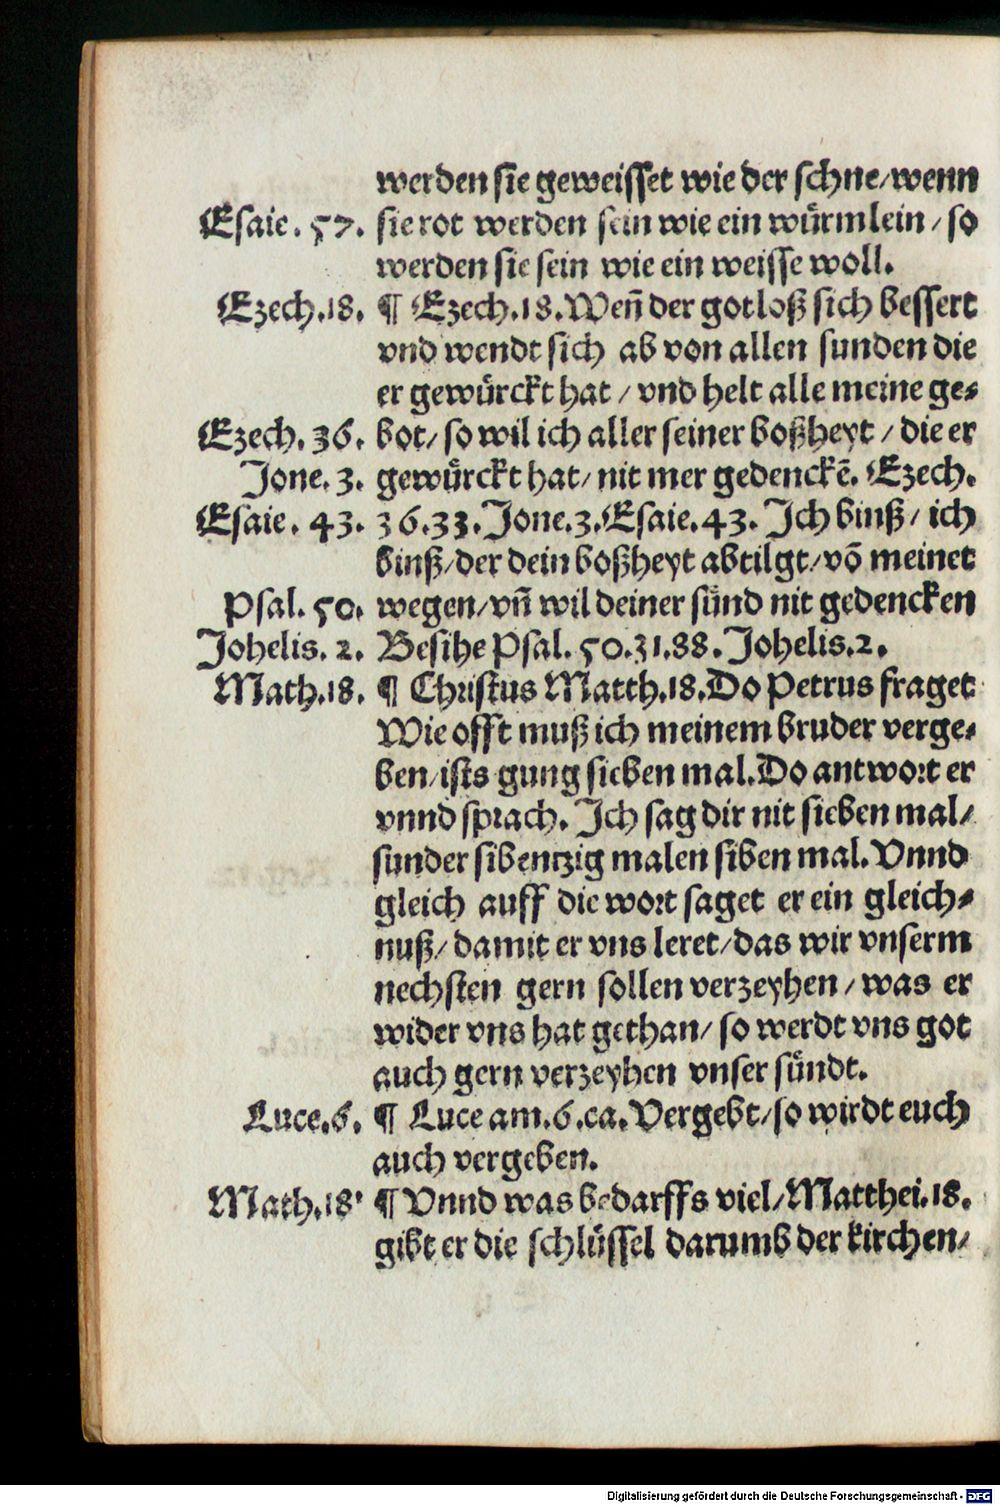 werden sie geweisset wie der schne/wenn
Esaie. 57. sie rot werden sein wie ein wuͤrmlein / so
werden sie sein wie ein weisse woll.
Ezech.18. ¶ Ezech.18.Weñ der gotloß sich bessert
vnd wendt sich ab von allen sunden die
er gewuͤrckt hat / vnd helt alle meine ge⸗
Ezech. 36. bot/ so wil ich aller seiner boßheyt / die er
Jone. 3. gewuͤrckt hat/ nit mer gedenckē. Ezech.
Esaie. 43. 36.33.Jone.3.Esaie.43. Ich binß/ ich
binß/der dein boßheyt abtilgt/vō meinet
Psal. 50. wegen/vñ wil deiner suͤnd nit gedencken
Johelis. 2. Besihe Psal. 50.31.88. Johelis.2.
Math.18. ¶ Christus Matth.18.Do Petrus fraget
Wie offt muß ich meinem bruder verge⸗
ben/ists gung sieben mal.Do antwort er
vnnd sprach. Ich sag dir nit sieben mal/
sunder sibentzig malen siben mal. Vnnd
gleich auff die wort saget er ein gleich⸗
nuß/ damit er vns leret/das wir vnserm
nechsten gern sollen verzeyhen / was er
wider vns hat gethan/ so werdt vns got
auch gern verzeyhen vnser suͤndt.
Luce.6. ¶ Luce am.6.ca.Vergebt/so wirdt euch
auch vergeben.
Math.18' ¶ Vnnd was bedarffs viel/Matthei.18.
gibt er die schluͤssel darumb der kirchen/
Digitalisierung gefördert durch die Deutsche Forschungsgemeinschaft - DFG